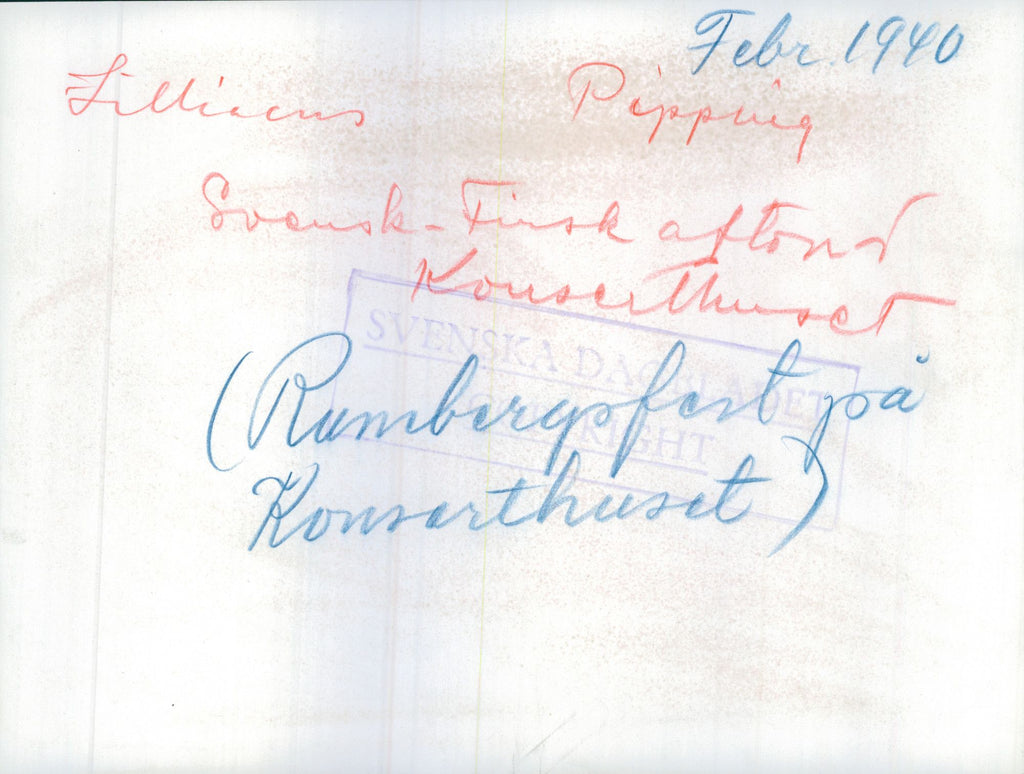 Febr. 1940
Lilliacus Pipping
Svensk-Finsk afton i
Konserthuset
SVENSKA DAGBLADET
COPYRIGHT
(Runebergsfest på
Konserthuset)